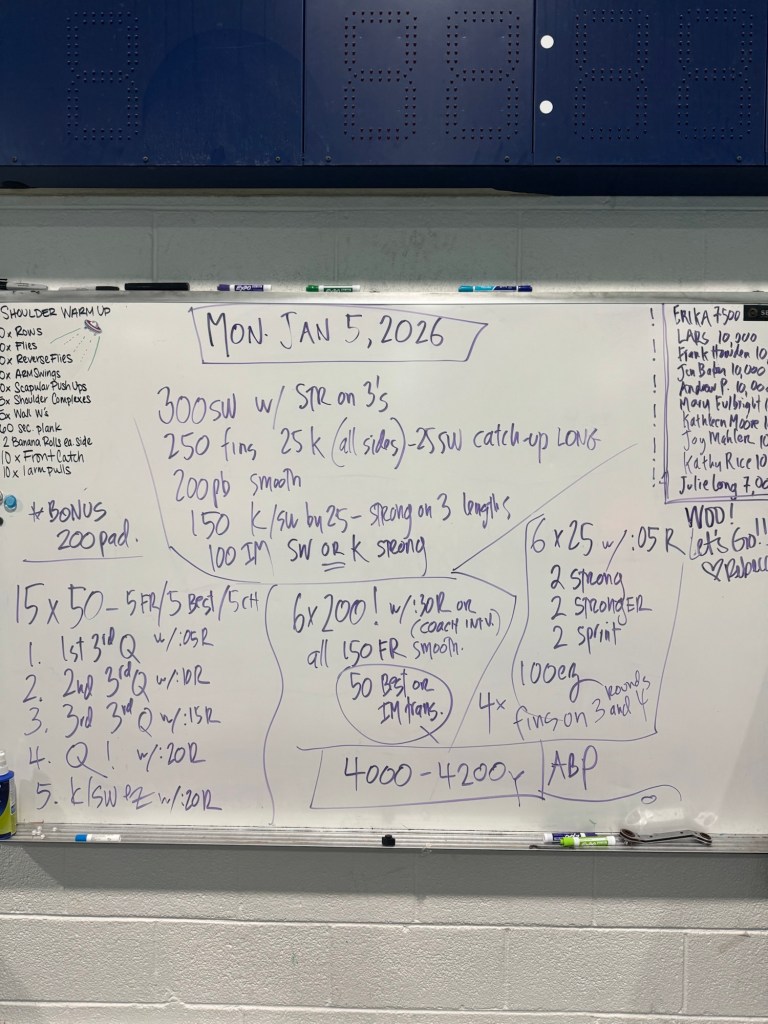 SHOULDER WARM UP
0x Rows
0x Flies
0x Reverse Flies
0x ARM Swings
0x Scapular Push Ups
5x Shoulder Complexes
5x Wall W's
60 sec. plank
2 Banana Rolls ea. side
10 x Front Catch
10 x 1 arm pulls
* BONUS
200 pad.
MON. JAN 5, 2026
300 SW w/ STR on 3's
250 fins 25 K (all sides) - 25 SW catch-up LONG
200 pb smooth
150 K/SW by 25 - strong on 3 lengths
100 IM SW OR K strong
15 x 50 - 5 FR/5 Best/5 CH
1. 1st 3rd Q w/:05R
2. 2nd 3rd Q w/:10R
3. 3rd 3rd Q w/:15R
4. Q! w/:20R
5. K/SW ez w/:20R
6x200! w/:30R or
(COACH INTV.)
all 150 FR smooth.
50 Best or
IM trans.
6 x 25 w/:05 R
2 strong
2 strongER
2 sprint
100 ez
4x fins on 3 and 4
rounds
4000 - 4200y
ABP
ERIKA 7500
LARS 10,000
10,
10,000
Andrew P. 10,00
Mary Fulbright
Kathleen Moore 1
Joy Mahler 10
Kathy Rice 10
Julie Long 7,0
WOO!
Let's Go!!